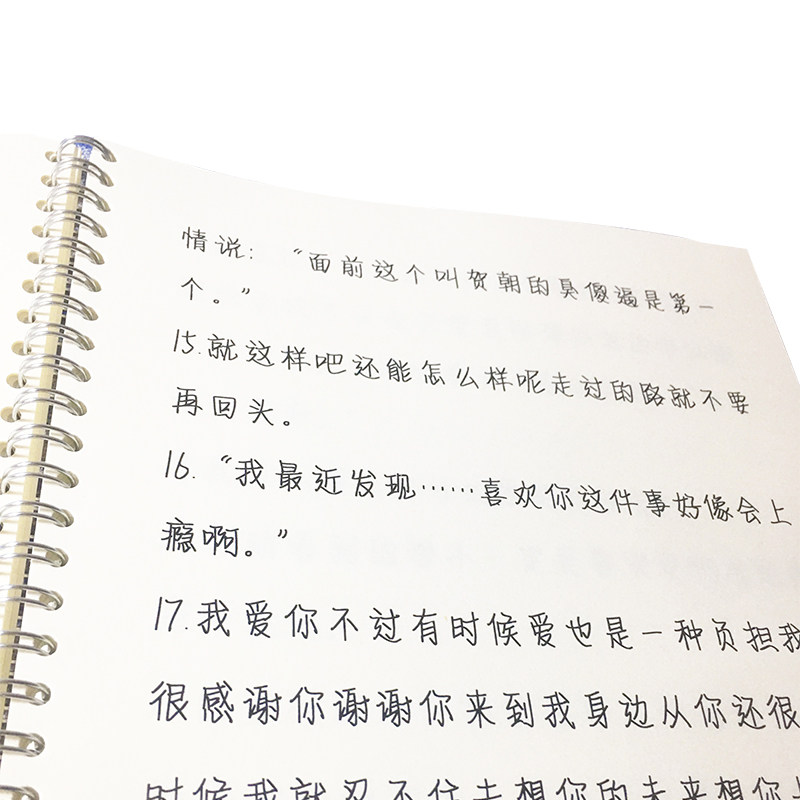 情说：“面前这个叫贺朝的臭傻逼是第一
个。”
15.就这样吧还能怎么样呢走过的路就不要
再回头。
16.“我最近发现……喜欢你这件事好像会上
瘾啊。”
17.我爱你不过有时候爱也是一种负担我
很感谢你谢谢你来到我身边从你还很
时候我就忍不住去想你的未来想你